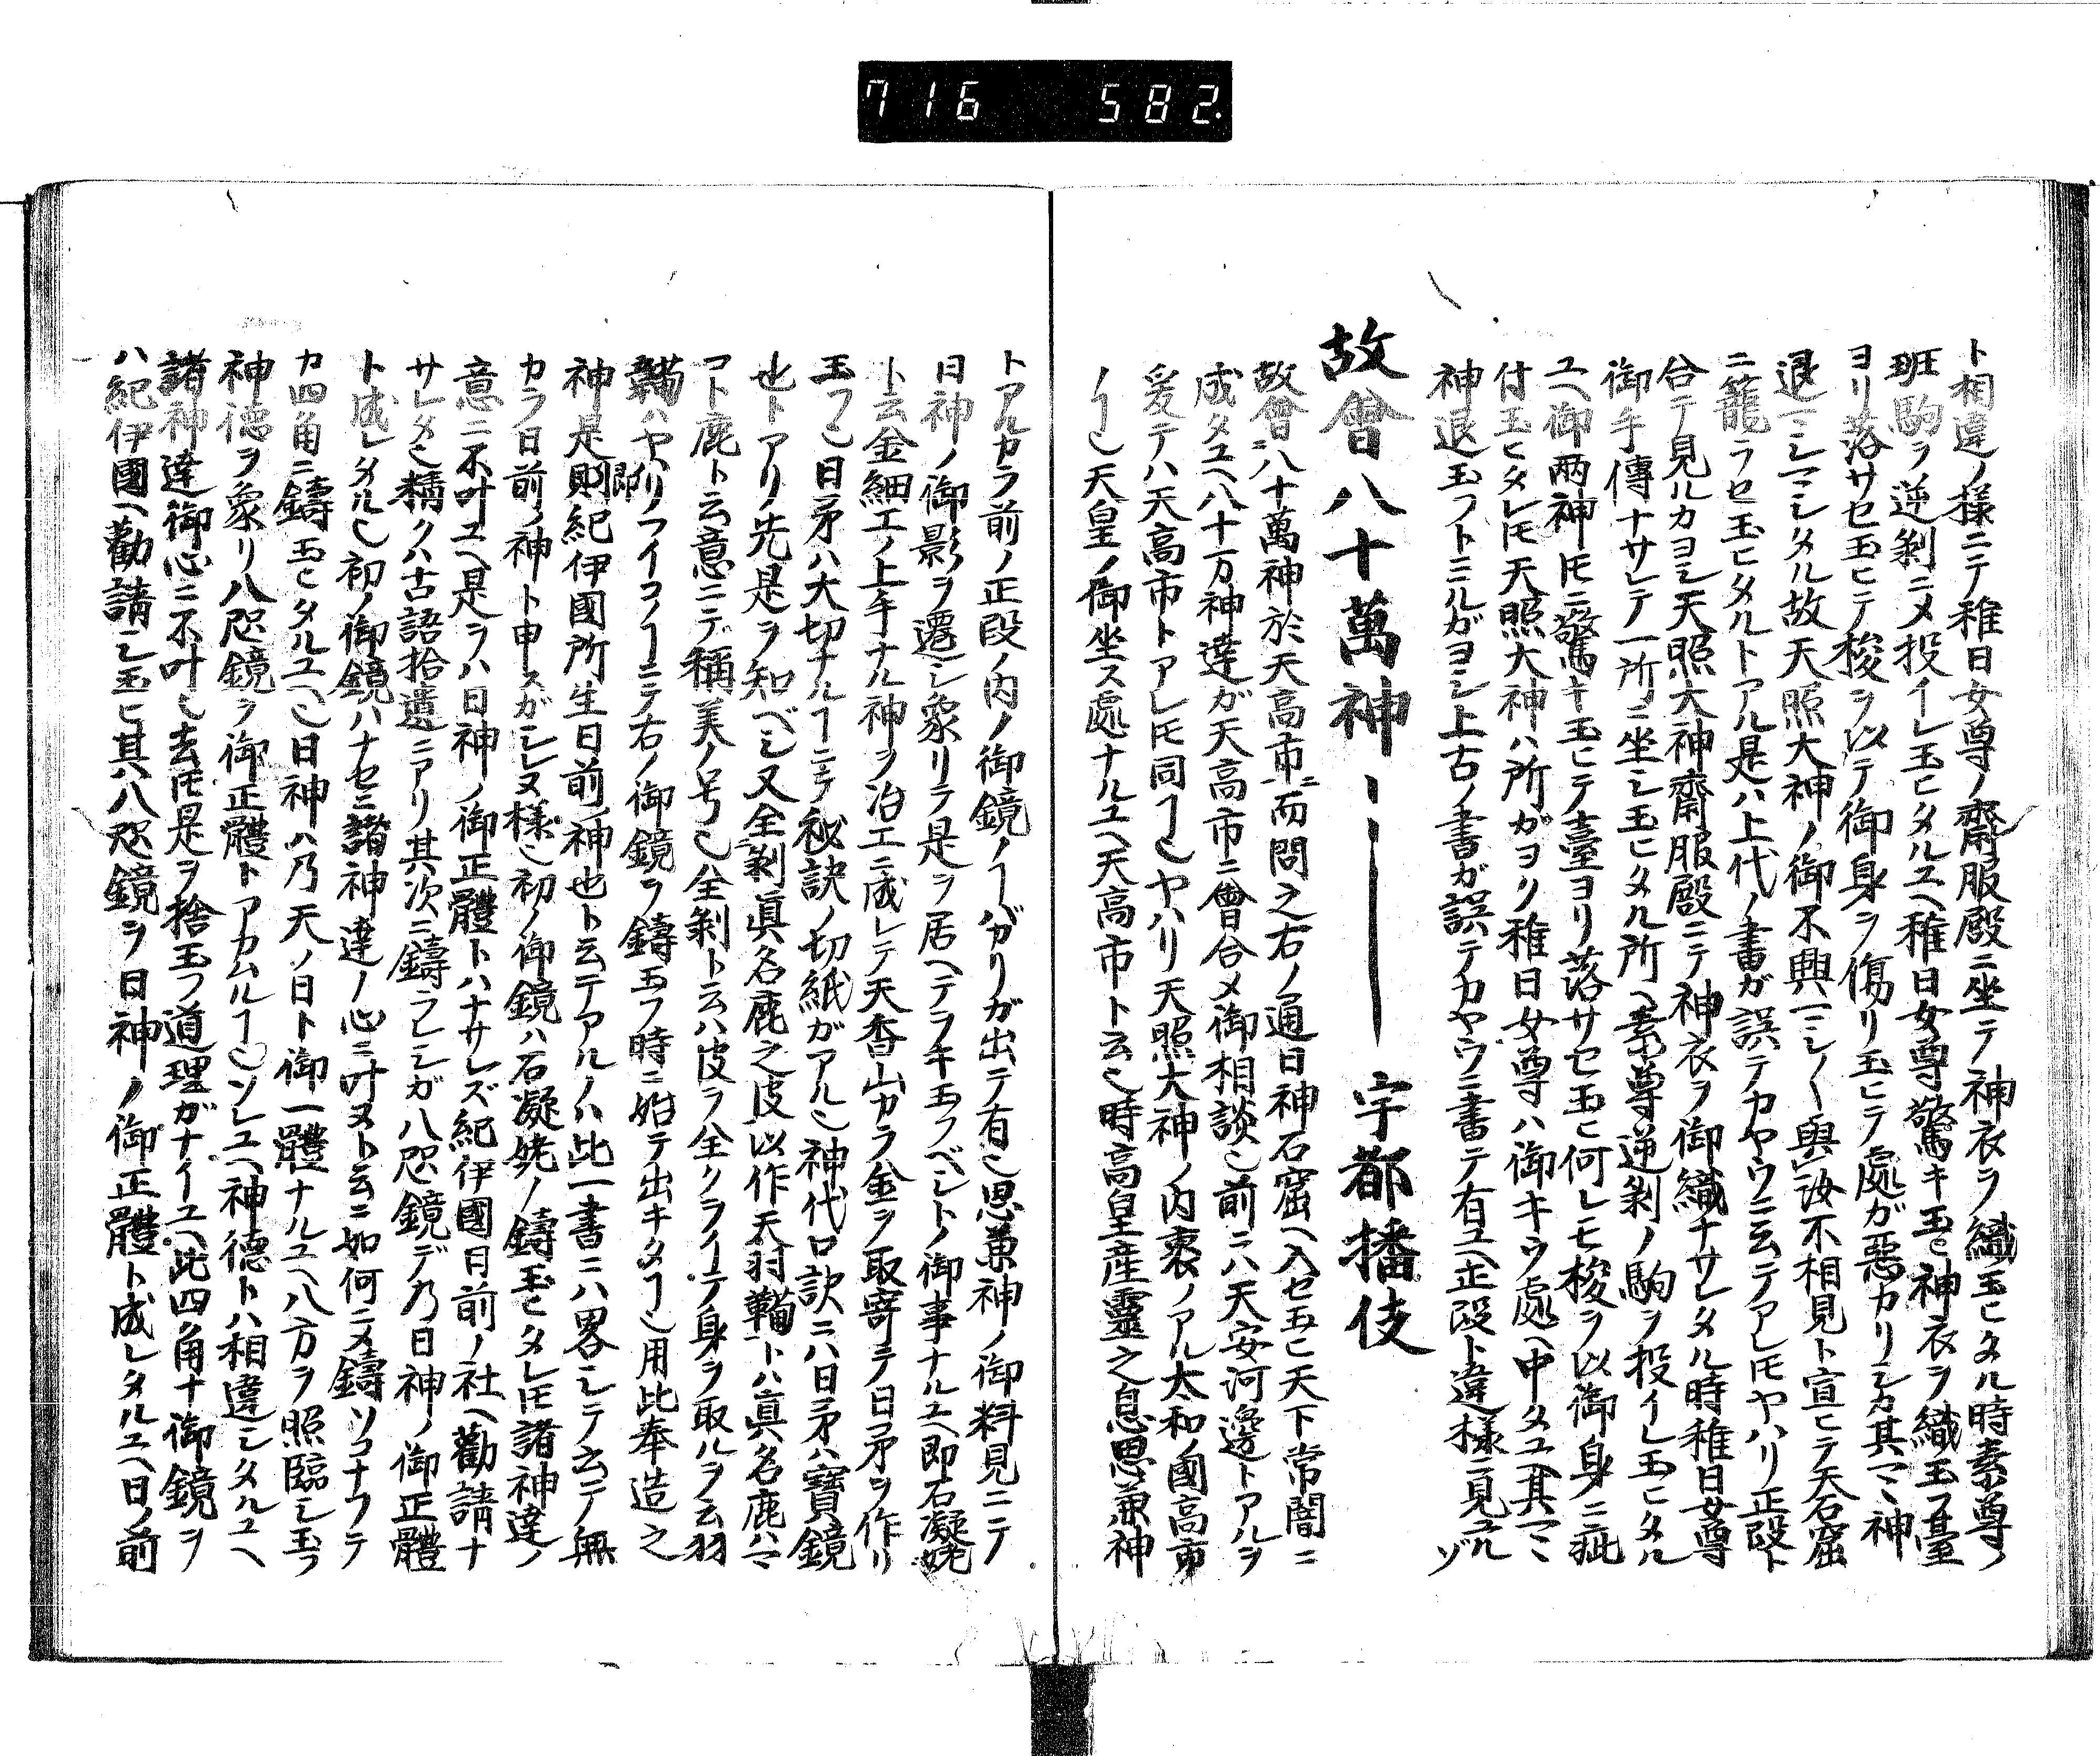 716 582.
ト相違ノ様ニテ稚日女尊ノ齋服殿ニ坐テ神衣ヲ織玉ヒタル時素尊ノ
班駒ヲ逆剥ニメ投イレ玉ヒタルユヘ稚日女尊驚キ玉ヒ神衣ヲ織玉フ臺
ヨリ落サセ玉ヒテ梭ヲ以テ御身ヲ傷リ玉ヒテ處ガ惡カリシカ其マヽ神
退マシマシタル故天照大神ノ御不興マシ〳〵與汝不相見ト宣ヒテ天石窟
ニ籠ラセ玉ヒタルトアル是ハ上代ノ書ガ誤テカヤウニ云テアレ𪜈ヤハリ正段ト
合テ見ルカヨシ天照大神齋服殿ニテ神衣ヲ御織ナサレタル時稚日女尊
御手傳ナサレテ一所ニ坐シ玉ヒタル所ヘ素尊逆剥ノ駒ヲ投イレ玉ヒタル
ユヘ御两神𪜈ニ驚キ玉ヒテ臺ヨリ落サセ玉ヒ何レモ梭ヲ以御身ニ疵
付玉ヒタレ𪜈天照大神ハ所ガヨク稚日女尊ハ御キウ處ヘ中タユヘ其マヽ
神退玉フトミルガヨシ上古ノ書ガ誤テカヤウニ書テ有ユヘ正段ト違様ニ見ユルゾ
故會八十萬神ーーー 宇都播伎
故會八十萬神於天高市而問之右ノ通日神石窟ヘ入セ玉ヒ天下常闇ニ
成タユヘ八十万神達ガ天高市ニ會合メ御相談也前ニハ天安河邊トアルヲ
爰テハ天高市トアレ𪜈同ヿ也ヤハリ天照大神ノ内裏ノアル太和ノ國高市
ノヿ也天皇ノ御坐ス處ナルユヘ天高市ト云也時高皇産靈之息思兼神
トアルカラ前ノ正段ノ内ノ御鏡ノヿバカリガ出テ有也思兼神ノ御料見ニテ
日神ノ御影ヲ遷シ象リテ是ヲ居ヘテヲキ玉フベシトノ御事ナルユヘ即石凝姥
ト云金細工ノ上手ナル神ヲ冶工ニ成レテ天香山カラ金ヲ取寄テ日矛ヲ作リ
玉フ也日矛ハ大切ナルヿニテ秘訣ノ切紙ガアル也神代口訣ニハ日矛ハ寶鏡
也トアリ先是ヲ知ベシ又全剥眞名鹿之皮以作天羽鞴トハ眞名鹿ハマ
コト鹿ト云意ニテ稱美ノ号也全剥ト云ハ皮ヲ全クヲイテ身ヲ取ルヲ云羽
鞴ハヤハリフイコノヿニテ右ノ御鏡ヲ鑄玉フ時ニ始テ出キタヿ也用此奉造之
神是即紀伊國所生日前神也ト云テアルノハ此一書ニハ畧シテ云テ無
カラ日前ノ神ト申スガシレヌ様也初ノ御鏡ハ石凝姥ノ鑄玉ヒタレ𪜈諸神達ノ
意ニ不叶ユヘ是ヲハ日神ノ御正體トハナサレズ紀伊國日前ノ社ヘ勸請ナ
サレタ也精クハ古語拾遺ニアリ其次ニ鑄ラレシガ八咫鏡デ乃日神ノ御正體
ト成レタル也初ノ御鏡ハナセニ諸神達ノ心ニ叶ヌト云ニ如何ニメ鑄ソコナフテ
カ四角ニ鑄玉ヒタルユヘ也日神ハ乃天ノ日ト御一體ナルユヘ八方ヲ照臨シ玉フ
神德ヲ象リ八咫鏡ヲ御正體トアカムルヿ也ソレユヘ神德トハ相違シタルユヘ
諸神達御心ニ不叶也去𪜈是ヲ捨玉フ道理ガナイユヘ此四角ナ御鏡ヲ
ハ紀伊國ヘ勸請シ玉ヒ其八咫鏡ヲ日神ノ御正體ト成レタルユヘ日ノ前